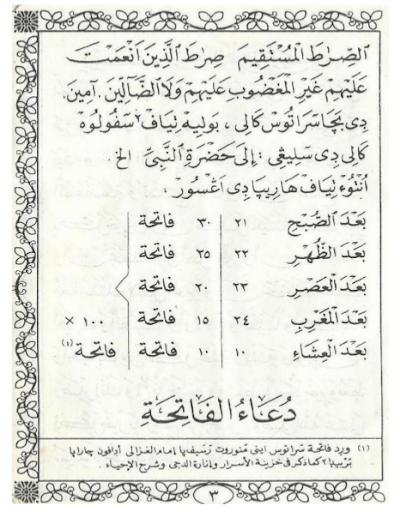 الصِّرَاطَ الْمُسْتَقِيمَ صِرَاطَ الَّذِينَ أَنْعَمْتَ
عَلَيْهِمْ غَيْرِ الْمَغْضُوبِ عَلَيْهِمْ وَلَا الضَّالِّينَ. آمِينَ.
دي بچا سراتوس كالي ، بوليه تياف٢ سڤولوه
كالي دي سليڠي : إِلَى حَضْرَةِ النَّبِيِّ الخ.
انتوء تياف هاريڽا دي اڠسور .
بَعْدَ الصُّبْحِ ٢١ ٣٠ فاتحة
بَعْدَ الظُّهْرِ ٢٢ ٢٥ فاتحة
بَعْدَ الْعَصْرِ ٢٣ ٢٠ فاتحة
بَعْدَ الْمَغْرِبِ ٢٤ ١٥ فاتحة ١٠٠ ×
بَعْدَ الْعِشَاءِ ١٠ ١٠ فاتحة فاتحة (١)
دُعَاءُ الْفَاتِحَةِ
(١) ورد فاتحة سراتوس ايني منوروت امام الغزالي اداڤون چاراڽا
كما ذكر في خزينة الأسرار وإنارة الدجى وشرح الإحياء.
٣